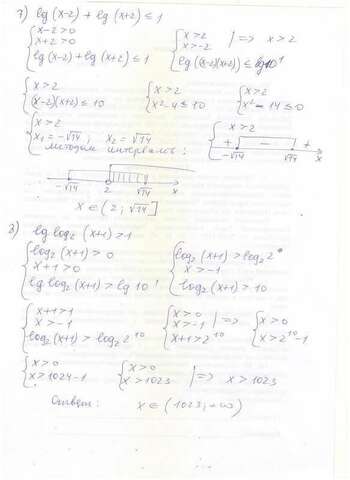 7) lg(x-2) + lg(x+2) ≤ 1
{ x-2>0
x+2>0
lg(x-2) + lg(x+2) ≤ 1
{ x>2
x>-2 | => x>2
lg((x-2)(x+2)) ≤ lg10¹
{ x>2
(x-2)(x+2) ≤ 10
{ x>2
x²-4 ≤ 10
{ x>2
x²-14 ≤ 0
{ x>2
x₁ = -√14 ; x₂ = √14
методом интервалов:
{ x>2
+ - +
-√14 √14 x
-√14 2 √14 x
x ∈ (2; √14]
8) lg log₂(x+1) > 1
{ log₂(x+1) > 0
x+1>0
lg log₂(x+1) > lg10¹
{ log₂(x+1) > log₂2⁰
x>-1
log₂(x+1) > 10
{ x+1>1
x>-1
log₂(x+1) > log₂2¹⁰
{ x>0
x>-1 | =>
x+1>2¹⁰
{ x>0
x>2¹⁰-1
{ x>0
x>1024-1
{ x>0
x>1023 | => x>1023
Ответ: x ∈ (1023; +∞)